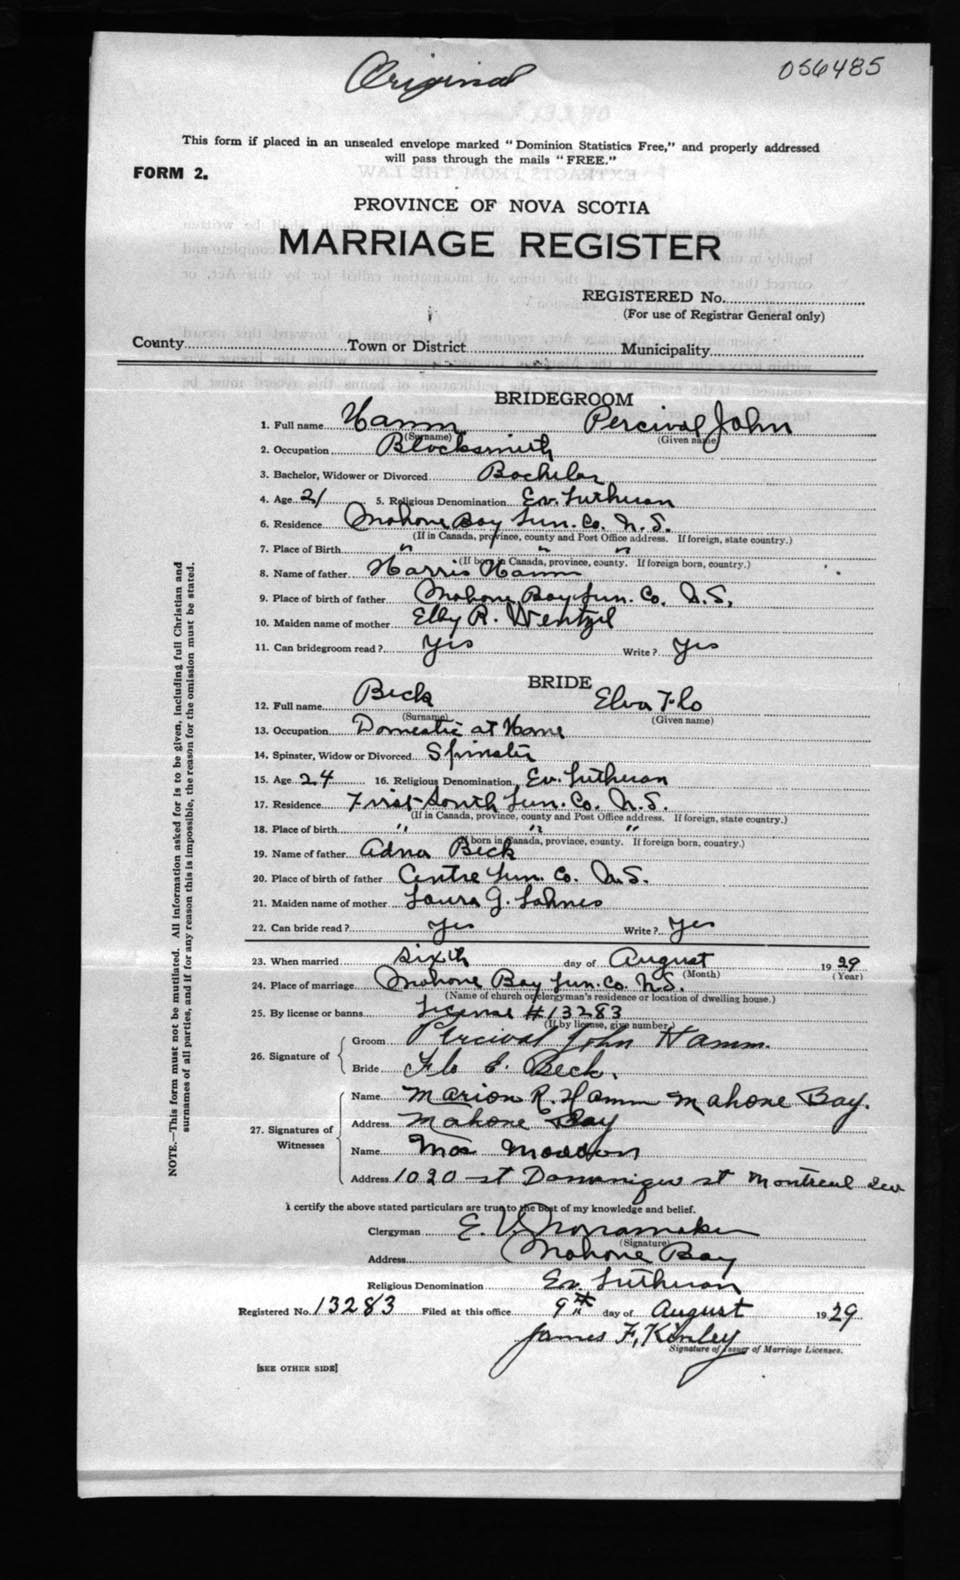 Original
056485
This form if placed in an unsealed envelope marked "Dominion Statistics Free," and properly addressed
will pass through the mails "FREE."
FORM 2.
PROVINCE OF NOVA SCOTIA
MARRIAGE REGISTER
REGISTERED No.
(For use of Registrar General only)
County Town or District Municipality
BRIDEGROOM
1. Full name Hamm Percival John
(Surname) (Given name)
2. Occupation Blacksmith
3. Bachelor, Widower or Divorced Bachelor
4. Age 21 5. Religious Denomination Ev. Lutheran
6. Residence Mahone Bay Lun. Co. N. S.
(If in Canada, province, county and Post Office address. If foreign, state country.)
7. Place of Birth " " "
(If born in Canada, province, county. If foreign born, country.)
8. Name of father Harris Hamm
9. Place of birth of father Mahone Bay Lun. Co. N. S.
10. Maiden name of mother Elby R. Wentzel
11. Can bridegroom read? Yes Write? Yes
BRIDE
12. Full name Beck Elva Flo
(Surname) (Given name)
13. Occupation Domestic at Home
14. Spinster, Widow or Divorced Spinster
15. Age 24 16. Religious Denomination Ev. Lutheran
17. Residence First South Lun. Co. N. S.
(If in Canada, province, county and Post Office address. If foreign, state country.)
18. Place of birth " " "
born in Canada, province, county. If foreign born, country.)
19. Name of father Adna Beck
20. Place of birth of father Centre Lun. Co. N. S.
21. Maiden name of mother Laura J. Lohnes
22. Can bride read? Yes Write? Yes
23. When married sixth day of August 1929
(Month) (Year)
24. Place of marriage Mahone Bay Lun. Co. N. S.
(Name of church or clergyman's residence or location of dwelling house.)
25. By license or banns License #13283
(If by license, give number)
26. Signature of Groom Percival John Hamm.
Bride Flo E. Beck.
27. Signatures of Witnesses
Name Marion R. Hamm Mahone Bay.
Address Mahone Bay
Name Mos
Address 1020 St St Montreal
I certify the above stated particulars are true to the best of my knowledge and belief.
Clergyman E. V.
(Signature)
Address Mahone Bay
Religious Denomination Ev. Lutheran
Registered No. 13283 Filed at this office 9th day of August 1929
James F. Kinley
Signature of Issuer of Marriage Licenses.
[SEE OTHER SIDE]
NOTE.—This form must not be mutilated. All information asked for is to be given, including full Christian and
surnames of all parties, and if for any reason this is impossible, the reason for the omission must be stated.